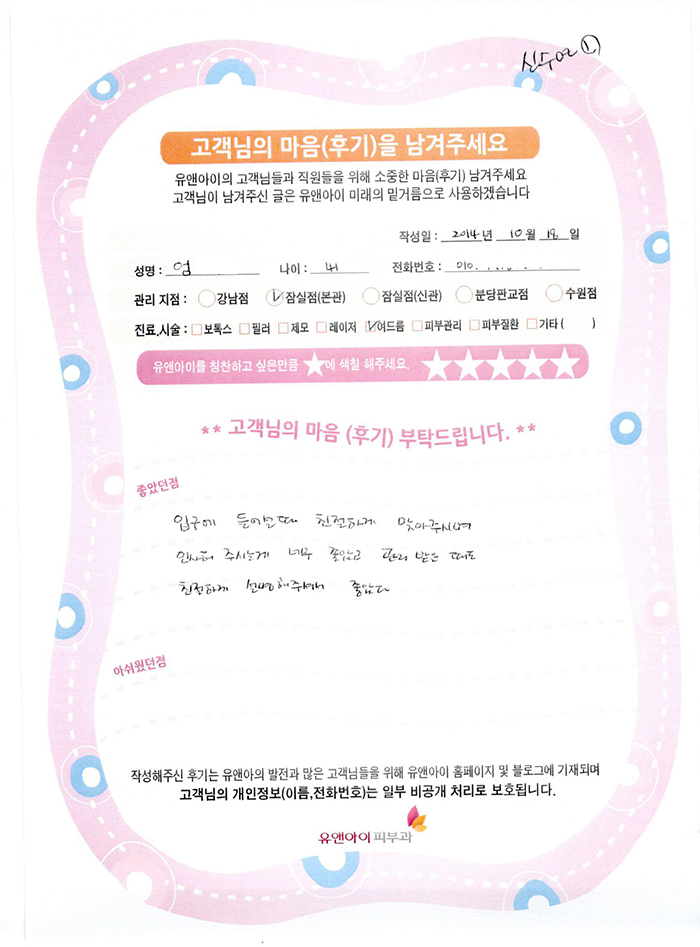 고객님의 마음(후기)을 남겨주세요
유앤아이의 고객님들과 직원들을 위해 소중한 마음(후기) 남겨주세요
고객님이 남겨주신 글은 유앤아이 미래의 밑거름으로 사용하겠습니다
작성일 : 2014년 10월 18일
성명 : 엄 나이 : 41 전화번호 : 010
관리 지점 : 강남점 잠실점(본관) 잠실점(신관) 분당판교점 수원점
진료,시술 : 보톡스 필러 제모 레이저 여드름 피부관리 피부질환 기타 ( )
유앤아이를 칭찬하고 싶은만큼 ★에 색칠 해주세요. ★★★★★
** 고객님의 마음 (후기) 부탁드립니다. **
좋았던점
입구에 들어올때 친절하게 맞아주시며
인사해 주시는게 너무 좋았고 관리 받은 때도
친절하게 설명해주셔서 좋았다
아쉬웠던점
작성해주신 후기는 유앤아의 발전과 많은 고객님들을 위해 유앤아이 홈페이지 및 블로그에 기재되며
고객님의 개인정보(이름,전화번호)는 일부 비공개 처리로 보호됩니다.
유앤아이피부과